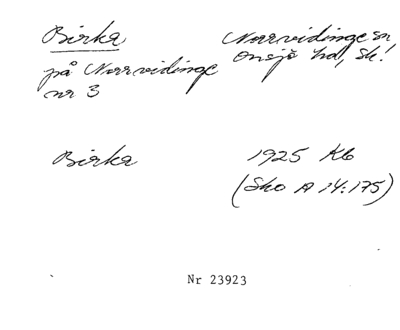 Birka
Norrvidinge sn
på Norrvidinge
Onsjö hd, Sk!
nr 3
Birka
1925 Kb
(Sko A 14:175)
Nr 23923